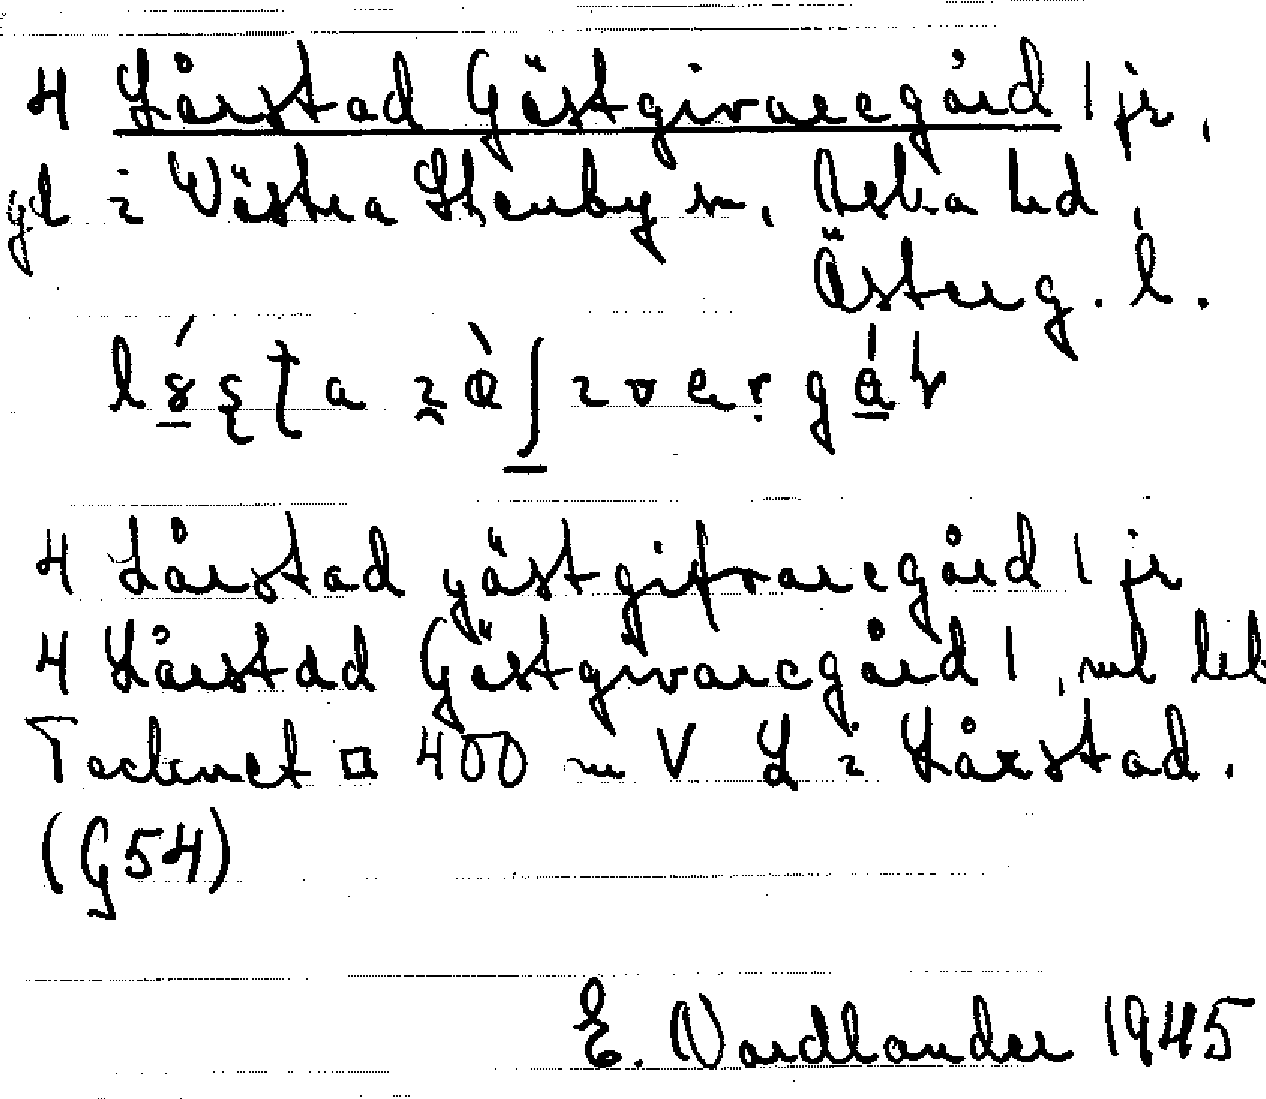 4 Lårstad Gästgivaregård 1 jr,
gd i Västra Stenby sn, Aska hd,
Österg. l.
4 Lårstad gästgifvaregård 1 jr
4 Lårstad Gästgivaregård 1, ml bel
Tecknet □ 400 m V L i Lårstad.
(G54)
E. Nordlander 1945